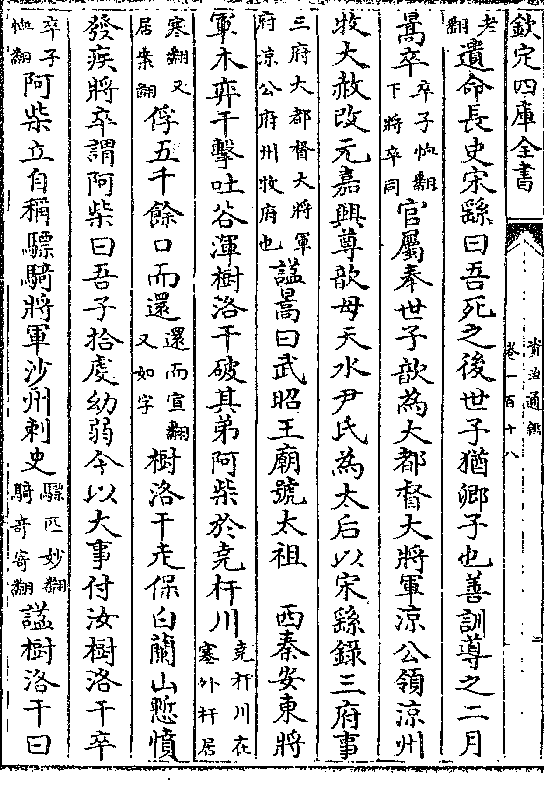 欽定四庫全書
資治通鑑
卷一百十八
二
老
翻遺命長史宋繇曰吾死之後世子猶卿子也善訓導之二月
暠卒卒子恤翻
下將卒同官屬奉世子歆為大都督大將軍涼公領涼州
牧大赦改元嘉興尊歆母天水尹氏為太后以宋繇錄三府事
三府大都督大將軍
府涼公府州牧府也諡暠曰武昭王廟號太祖 西秦安東將
軍木弈干擊吐谷渾樹洛干破其弟阿柴於堯杆川堯杆川在
塞外杆居
寒翻又
居案翻俘五千餘口而還還而宣翻
又如字樹洛干走保白蘭山慙憤
發疾將卒謂阿柴曰吾子拾虔幼弱今以大事付汝樹洛干卒
卒子
恤翻阿柴立自稱驃騎將軍沙州刺史驃匹妙翻
騎奇寄翻諡樹洛干曰